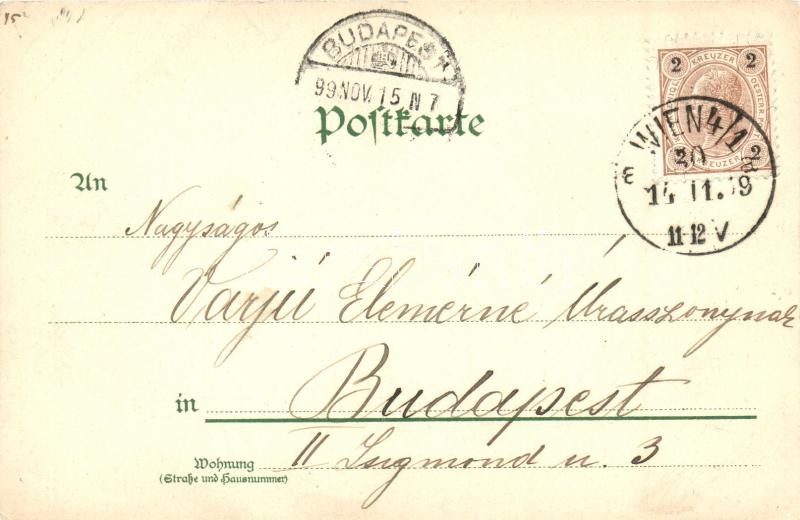 BUDAPEST
99 NOV. 15 N 7
2 KREUZER 2
WIEN 4/1
20
14 11.99
11-12 V
Postkarte
An
Nagyságos
Varjú Elemérné Úrasszonynak
in Budapest
Wohnung II Zsigmond u. 3
(Straße und Hausnummer)